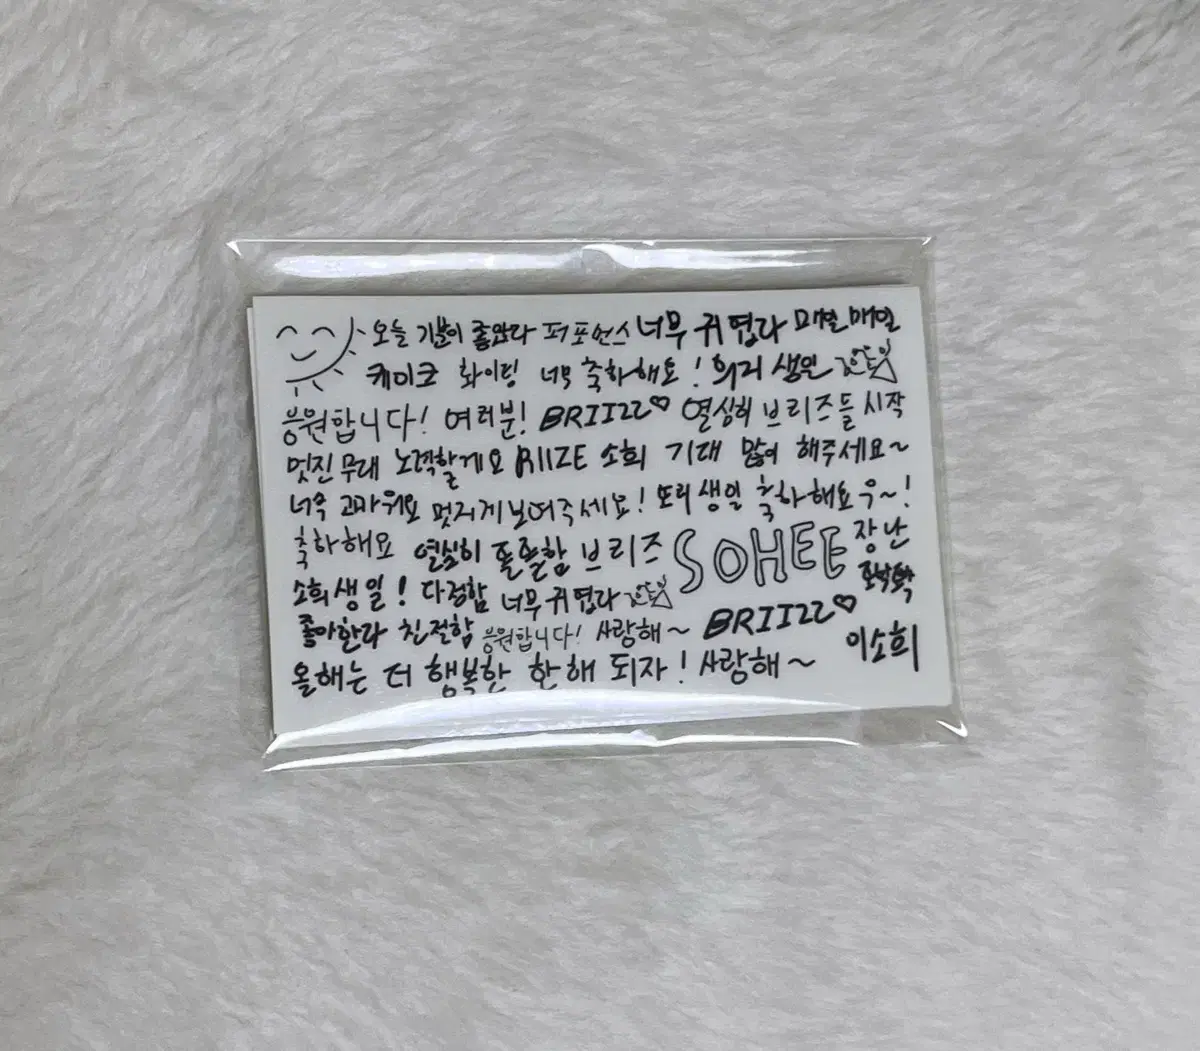 오늘 기분이 좋았다 퍼포먼스 너무 귀엽다 매일매일
케이크 화이팅 너무 축하해요! 희리 생일
응원합니다! 여러분! BRIIZZ♡ 열심히 브리즈들 시작
멋진 무대 노력할게요 RIIZE 소희 기대 많이 해주세요~
너무 고마워요 멋지게 보여주세요! 또리 생일 축하해요 우~!
축하해요 열심히 돌돌함 브리즈 SOHEE 장난
소희 생일! 다정함 너무 귀엽다
좋아한다 친절함 응원합니다! 사랑해~ BRIIZZ♡ 이소희
올해는 더 행복한 한 해 되자! 사랑해~